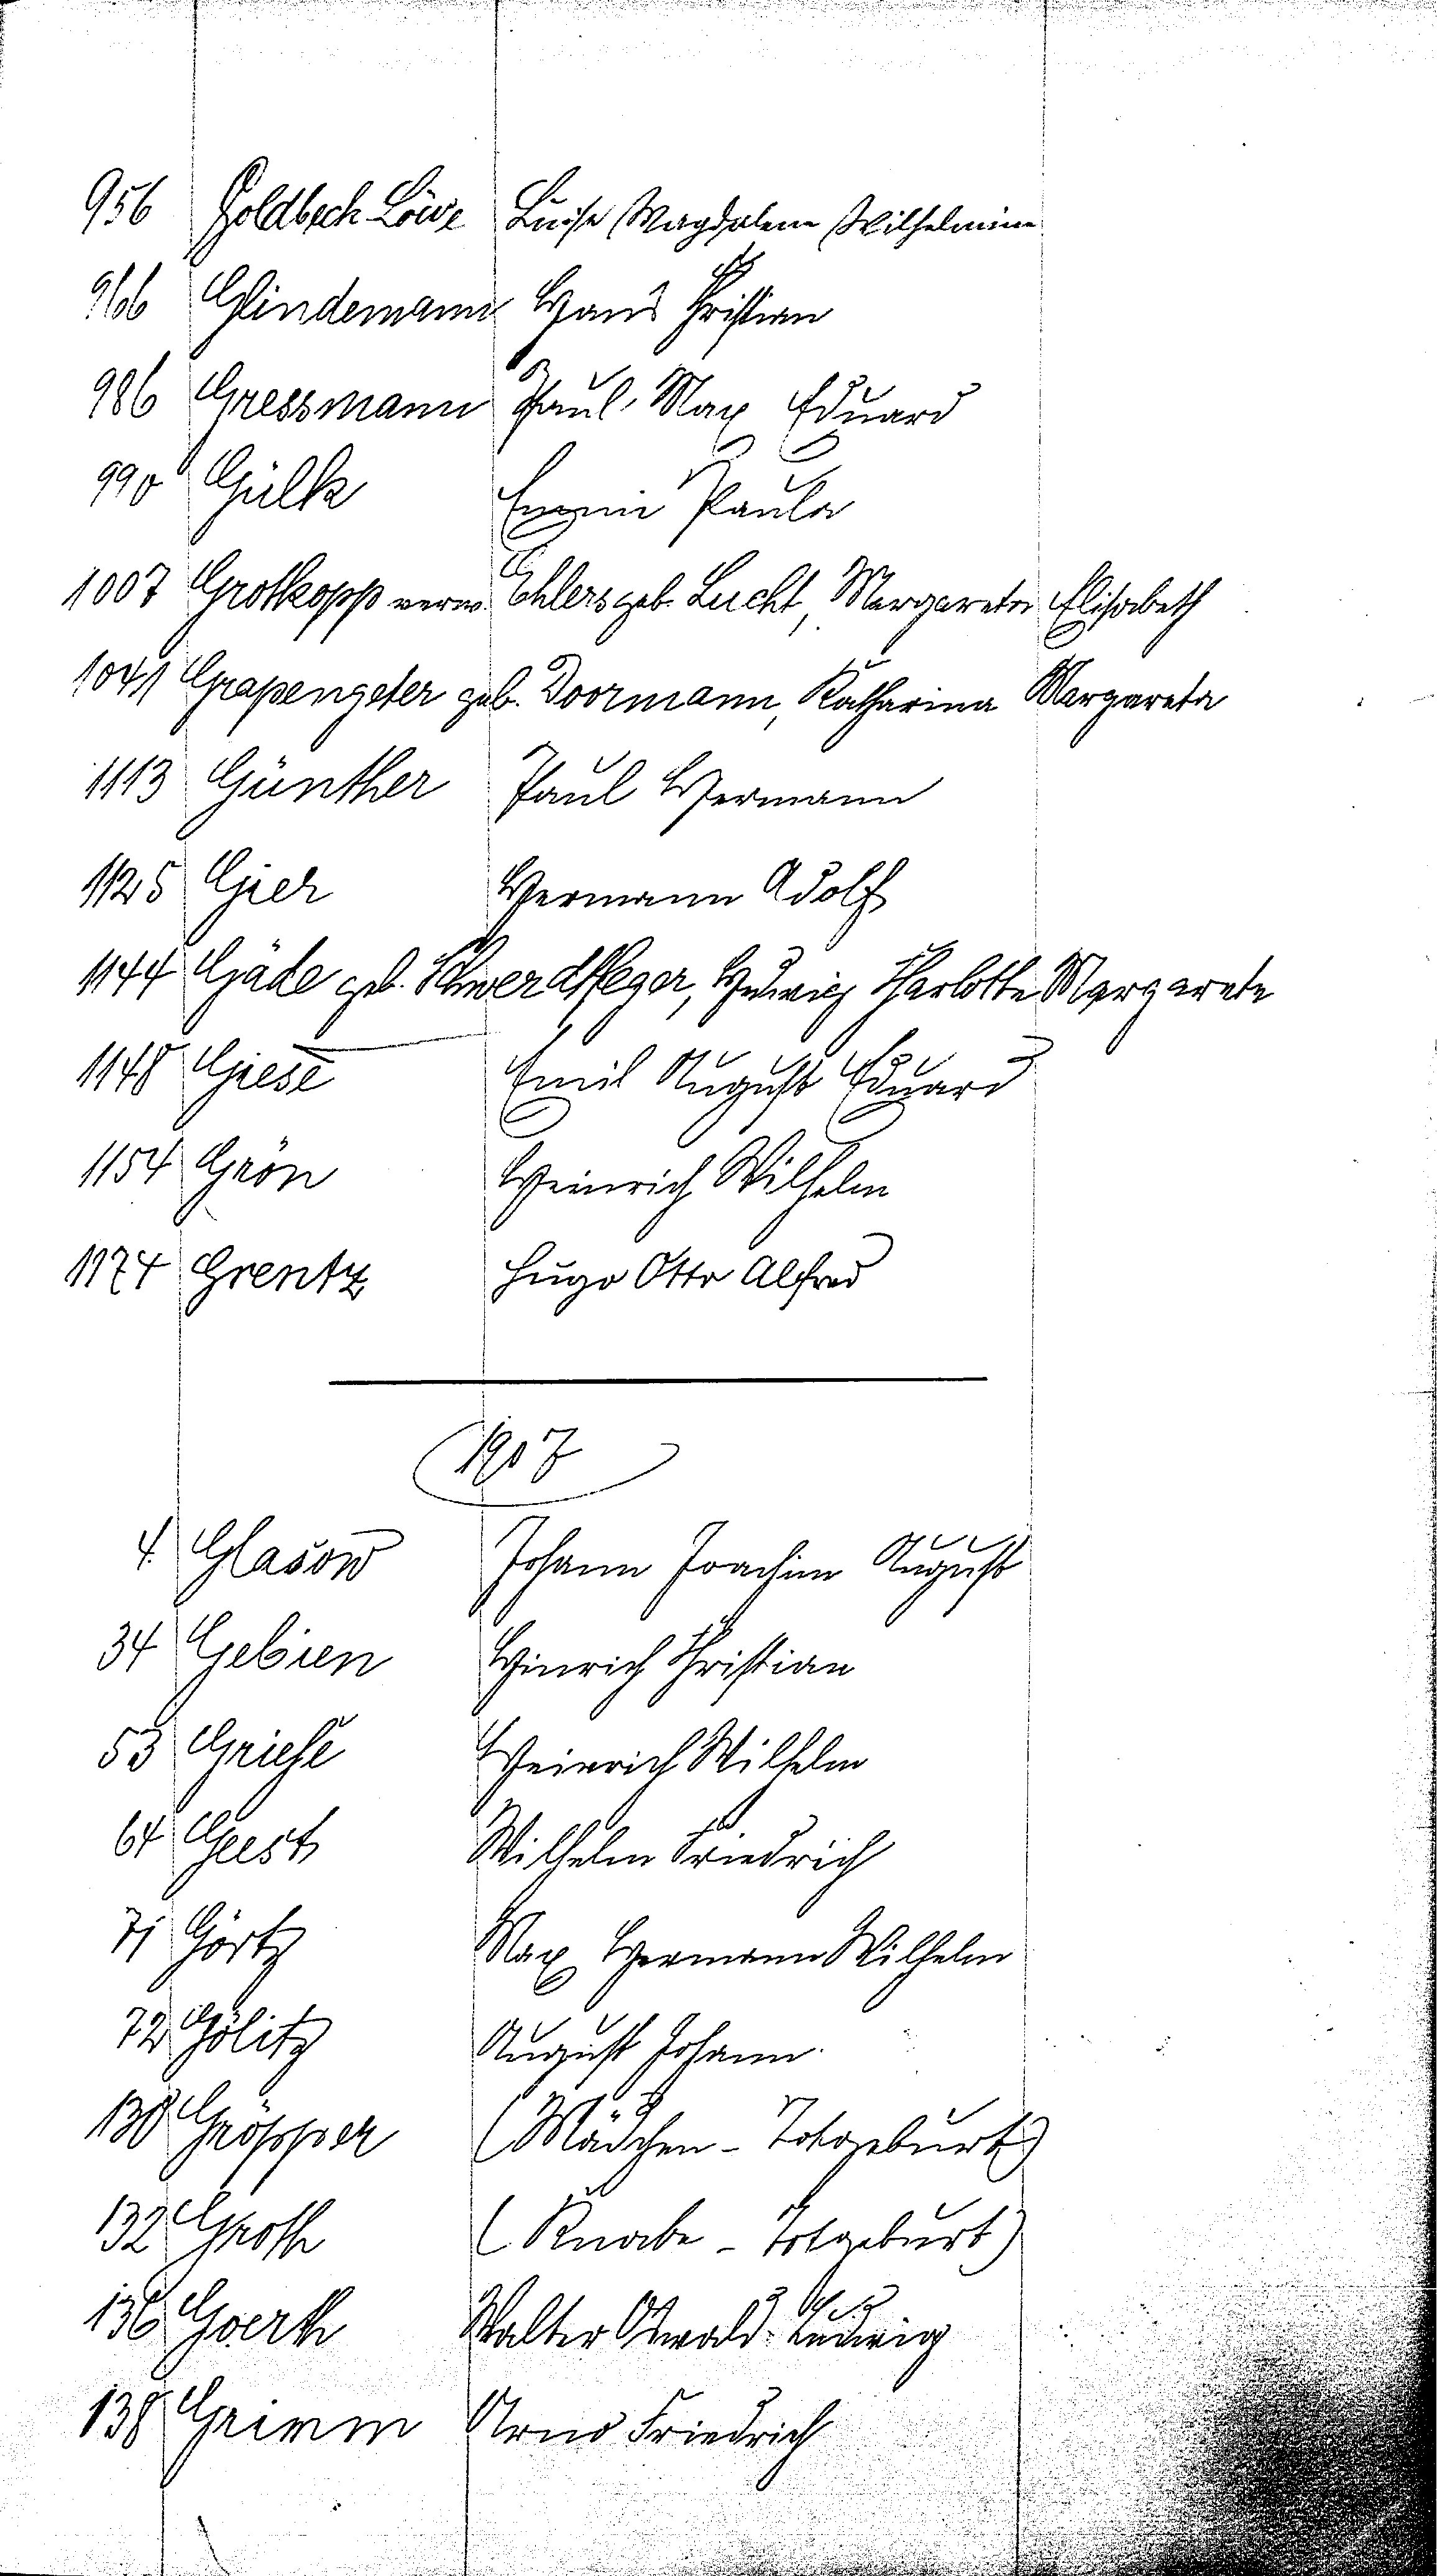 956 Goldbeck-Löwe Luise Magdalene Wilhelmine
966 Glindemann Hans Christian
986 Gressmann Paul Max Eduard
990 Gülk Emmi Paula
1007 Grotkopp verw. Ehlers geb. Lucht, Margareta Elisabeth
1041 Grapengeter geb. Doormann, Katharina Margareta
1113 Günther Paul Hermann
1125 Gier Hermann Adolf
1144 Gäde geb. Schwerdtfeger, Hedwig Charlotte Margarete
1148 Giese Emil August Eduard
1154 Grön Heinrich Wilhelm
1174 Grentz Hugo Otto Alfred
1907
4. Glasow Johann Joachim August
34 Gebien Hinrich Christian
53 Griese Heinrich Wilhelm
64 Geest Wilhelm Friedrich
71 Görtz Max Hermann Wilhelm
72 Gölitz August Johann
130 Gröpper (Mädchen - Totgeburt)
132 Groth (Knabe - Totgeburt)
136 Goerk Walter Oswald Ludwig
138 Grimm Arno Friedrich